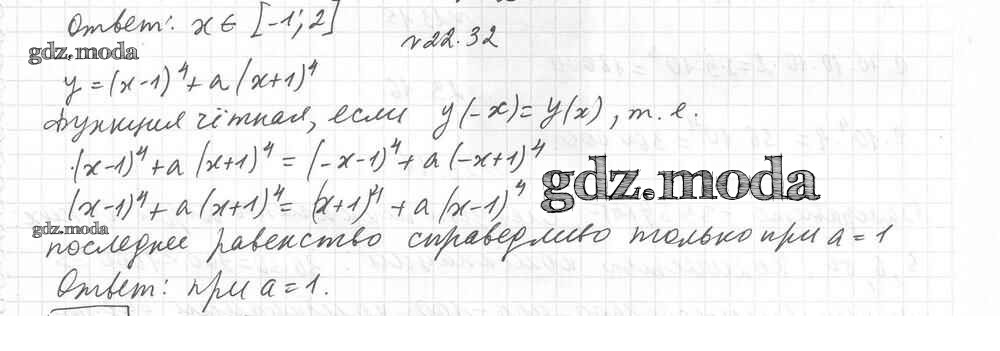 Ответ: x ∈ [-1; 2]
№22.32
gdz.moda
y = (x-1)⁴ + a (x+1)⁴
Функция чётная, если y(-x) = y(x), т. е.
(x-1)⁴ + a (x+1)⁴ = (-x-1)⁴ + a (-x+1)⁴
gdz.moda
(x-1)⁴ + a (x+1)⁴ = (x+1)⁴ + a (x-1)⁴
gdz.moda
последнее равенство справедливо только при a = 1
Ответ: при a = 1.